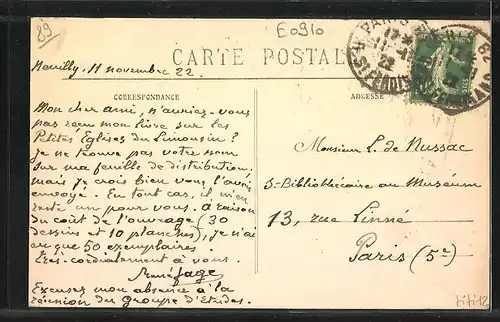 89
E0910
CARTE POSTALE
PARIS
Neuilly, 11 novembre 22.
CORRESPONDANCE
Mon cher ami, n'auriez-vous
pas reçu mon livre sur les
Petites Eglises du Limousin ?
Je ne trouve pas votre nom
sur ma feuille de distribution,
mais je crois bien vous l'avoir
envoyé. En tout cas, il m'en
reste un pour vous. à raison
du coût de l'ouvrage (30
dessins et 10 planches), je n'ai
eu que 50 exemplaires
Très cordialement à vous.
René Fage
Excusez mon absence à la
réunion du groupe d'Etudes.
ADRESSE
Monsieur L. de Nussac
S-Bibliothécaire au Muséum
13, rue Linné
Paris (5e)
titi12